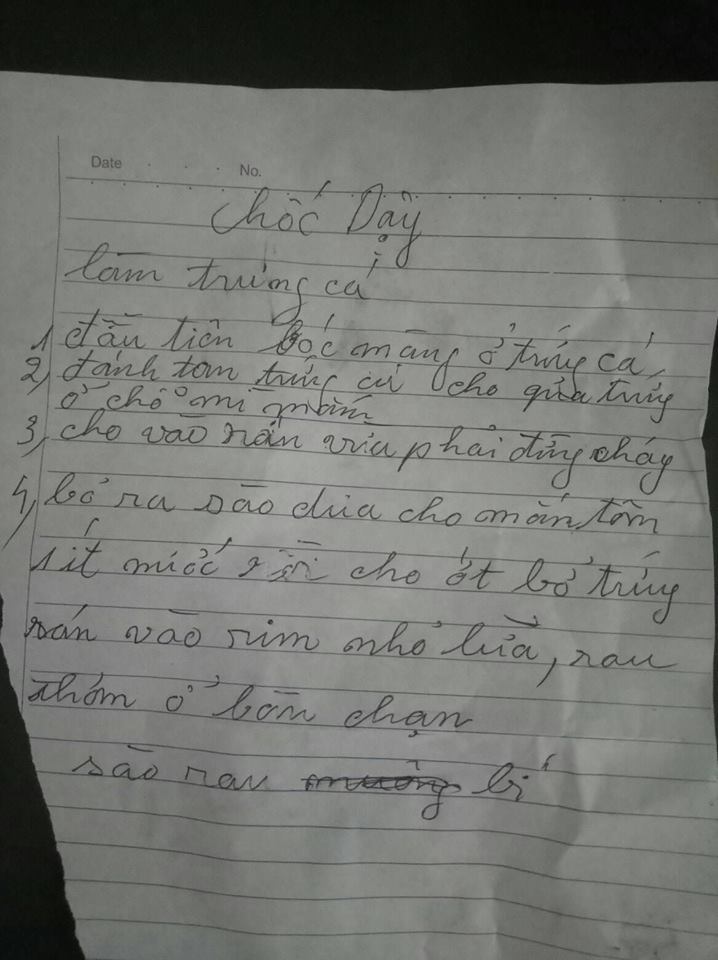 Date No.
Chốc Dạy
làm trứng cá
1 đầu tiên bóc màng ở trứng cá,
2, đánh tan trứng cá cho quả trứng
ở chỗ mì nắm
3, cho vào rán vừa phải đừng cháy
4, bỏ ra sào dưa cho mắn tôm
sít mước rồi cho ớt bỏ trứng
rán vào rim nhỏ lửa, rau
thơm ở bàn chạn
sào rau bí